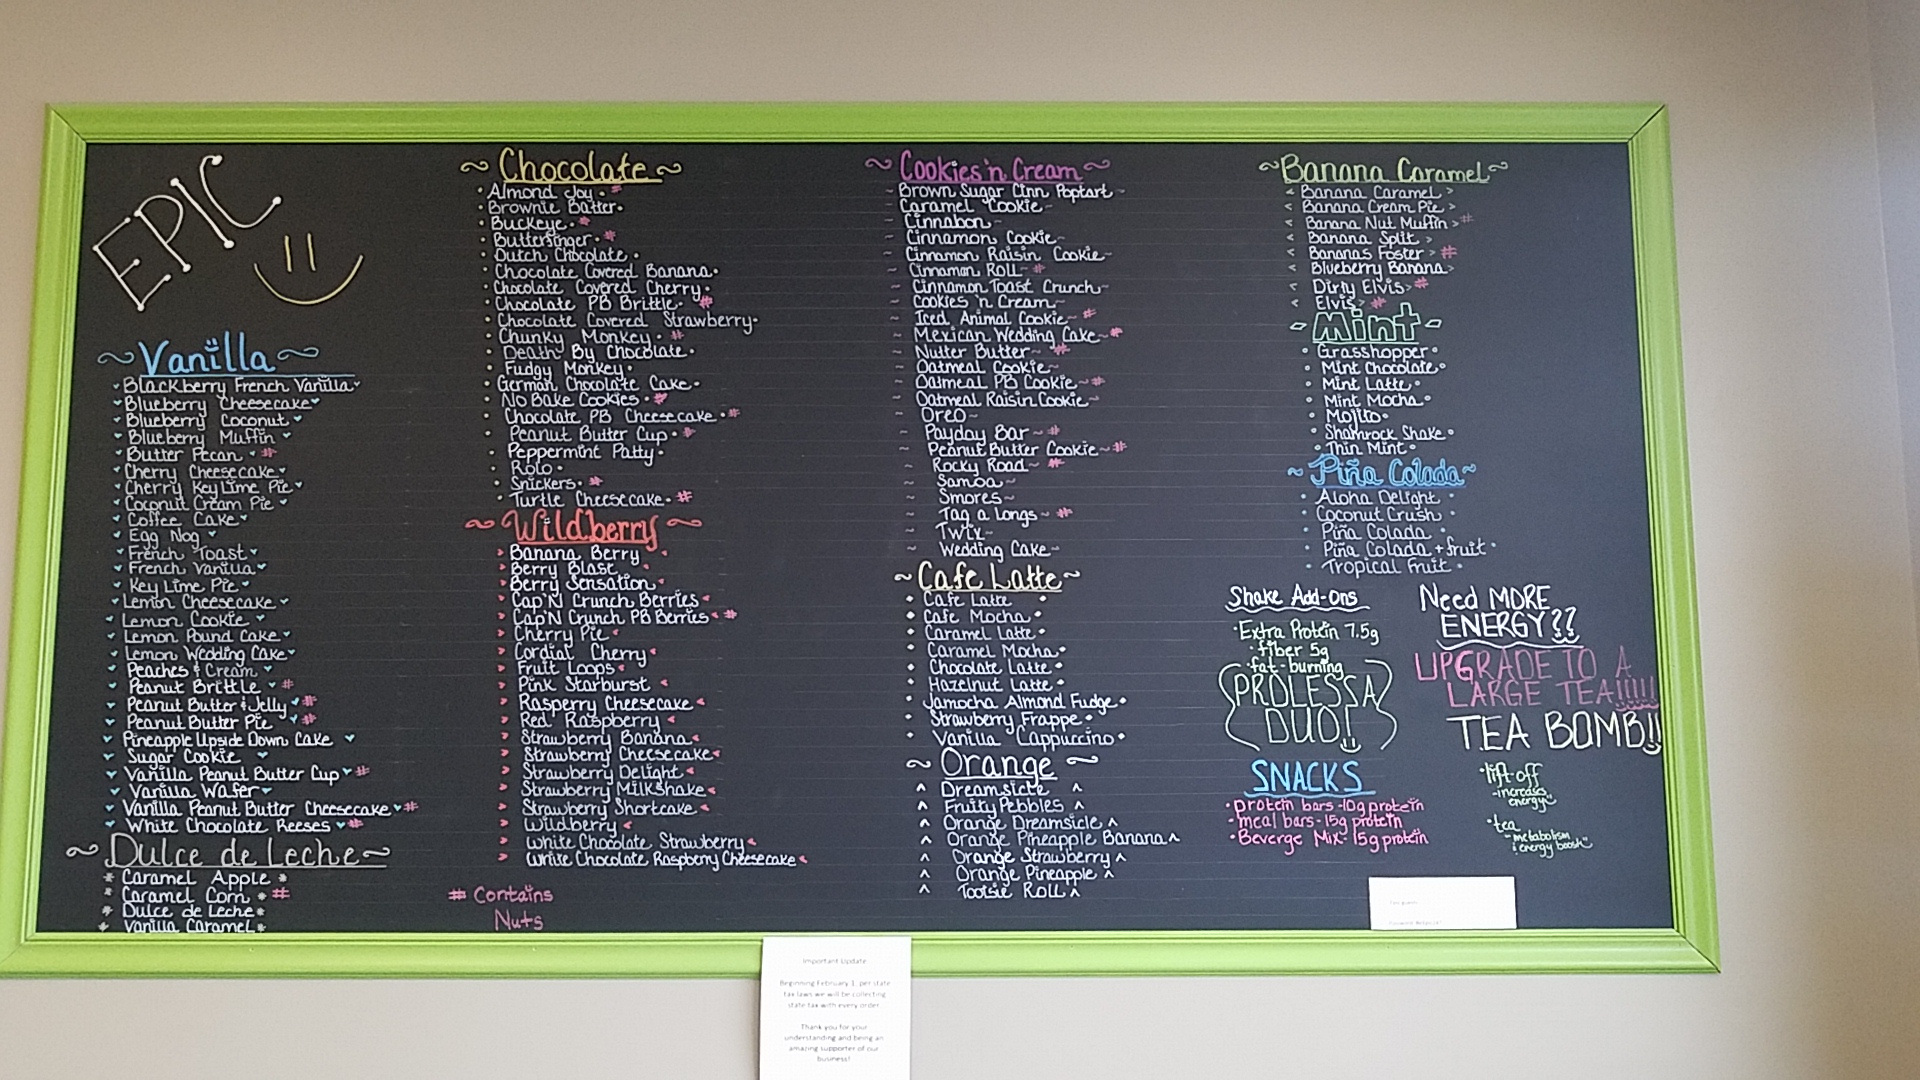 EPIC
~Vanilla~
Blackberry French Vanilla
Blueberry Cheesecake
Blueberry Coconut
Blueberry Muffin
Butter Pecan #
Cherry Cheesecake
Cherry Key Lime Pie
Coconut Cream Pie
Coffee Cake
Egg Nog
French Toast
French Vanilla
Key Lime Pie
Lemon Cheesecake
Lemon Cookie
Lemon Pound Cake
Lemon Wedding Cake
Peaches & Cream
Peanut Brittle #
Peanut Butter & Jelly #
Peanut Butter Pie #
Pineapple Upside Down Cake
Sugar Cookie
Vanilla Peanut Butter Cup #
Vanilla Wafer
Vanilla Peanut Butter Cheesecake #
White Chocolate Reeses #
~Dulce de Leche~
Caramel Apple
Caramel Corn #
Dulce de Leche
Vanilla Caramel
~Chocolate~
Almond Joy #
Brownie Batter
Buckeye #
Butterfinger #
Dutch Chocolate
Chocolate Covered Banana
Chocolate Covered Cherry
Chocolate PB Brittle #
Chocolate Covered Strawberry
Chunky Monkey #
Death By Chocolate
Fudgy Monkey
German Chocolate Cake
No Bake Cookies #
Chocolate PB Cheesecake #
Peanut Butter Cup #
Peppermint Patty
Rolo
Snickers #
Turtle Cheesecake #
~Wildberry~
Banana Berry
Berry Blast
Berry Sensation
Cap'N Crunch Berries
Cap'N Crunch PB Berries #
Cherry Pie
Cordial Cherry
Fruit Loops
Pink Starburst
Rasperry Cheesecake
Red Raspberry
Strawberry Banana
Strawberry Cheesecake
Strawberry Delight
Strawberry Milkshake
Strawberry Shortcake
Wildberry
White Chocolate Strawberry
White Chocolate Raspberry Cheesecake
# Contains
Nuts
~Cookies'n Cream~
Brown Sugar Cinn Poptart
Caramel Cookie
Cinnabon
Cinnamon Cookie
Cinnamon Raisin Cookie
Cinnamon Roll #
Cinnamon Toast Crunch
Cookies 'n Cream
Iced Animal Cookie #
Mexican Wedding Cake #
Nutter Butter #
Oatmeal Cookie
Oatmeal PB Cookie #
Oatmeal Raisin Cookie
Oreo
Payday Bar #
Peanut Butter Cookie #
Rocky Road #
Samoa
Smores
Tag a Longs #
Twix
Wedding Cake
~Cafe Latte~
Cafe Latte
Cafe Mocha
Caramel Latte
Caramel Mocha
Chocolate Latte
Hazelnut Latte
Jamocha Almond Fudge
Strawberry Frappe
Vanilla Cappuccino
~Orange~
Dreamsicle
Fruity Pebbles
Orange Dreamsicle
Orange Pineapple Banana
Orange Strawberry
Orange Pineapple
Tootsie Roll
~Banana Caramel~
Banana Caramel
Banana Cream Pie
Banana Nut Muffin #
Banana Split
Bananas Foster #
Blueberry Banana
Dirty Elvis #
Elvis #
Mint
Grasshopper
Mint Chocolate
Mint Latte
Mint Mocha
Mojito
Shamrock Shake
Thin Mint
~Piña Colada~
Aloha Delight
Coconut Crush
Piña Colada
Piña Colada + fruit
Tropical Fruit
Shake Add-Ons
Extra Protein 7.5g
fiber 5g
fat-burning
PROLESSA
DUO!
SNACKS
protein bars -10g protein
meal bars - 15g protein
Beverge Mix- 15g protein
Need MORE
ENERGY??
UPGRADE TO A
LARGE TEA!!!!!
TEA BOMB!!
lift-off
-increases
energy
tea
-metabolism
& energy boost
Important Update
Beginning February 1, per state
tax laws we will be collecting
state tax with every order.
Thank you for your
understanding and being an
amazing supporter of our
business!